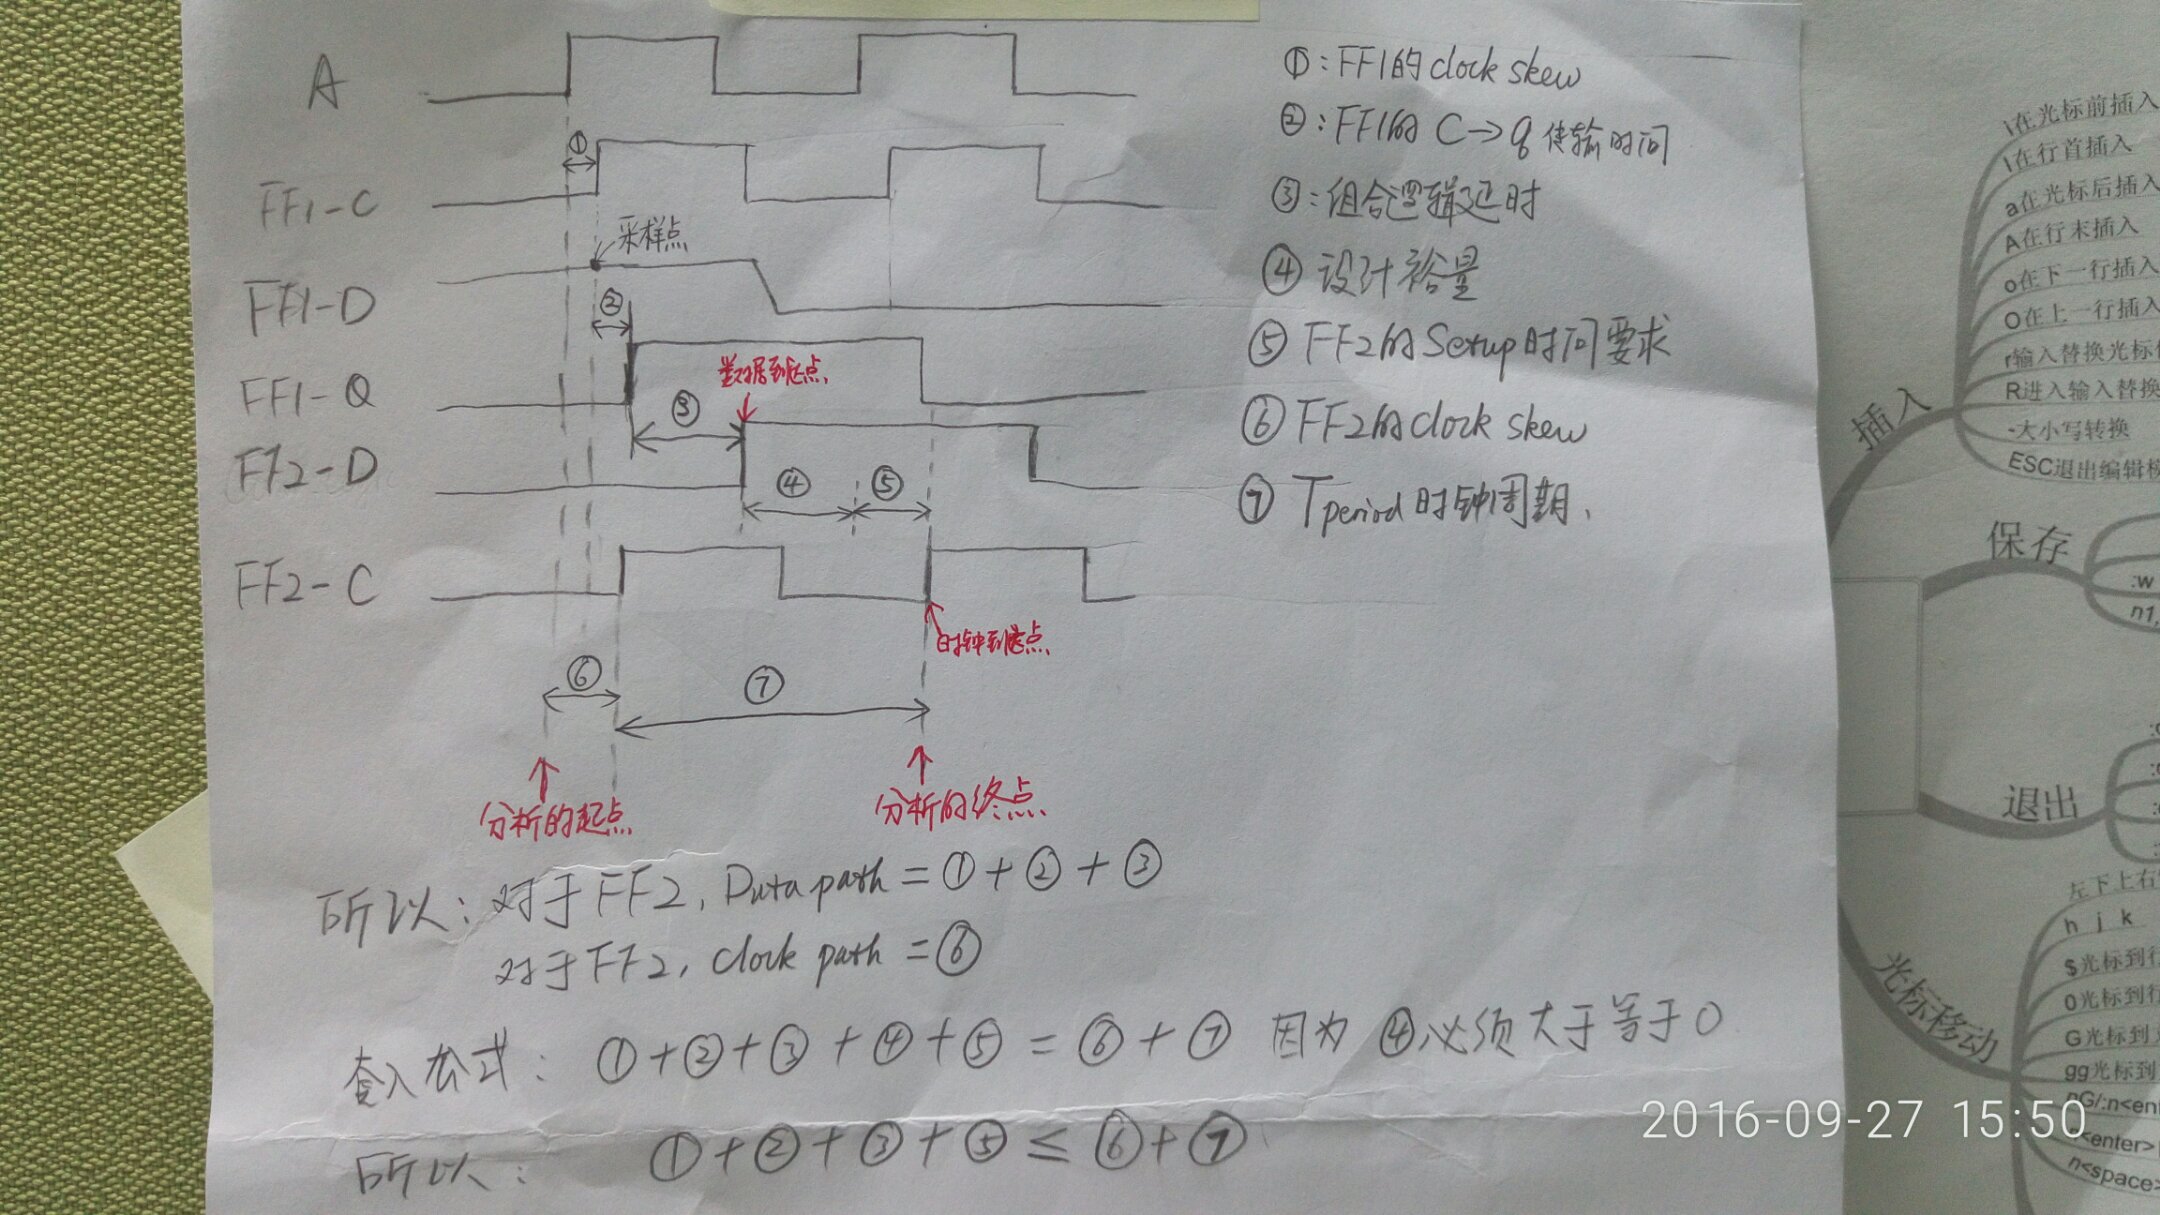 A
①
FF1-C
采样点
FF1-D
②
FF1-Q
数据到达点
③
FF2-D
④ ⑤
FF2-C
时钟到达点
⑥ ⑦
分析的起点
分析的终点
①:FF1的clock skew
②:FF1的 C→q 传输时间
③:组合逻辑延时
④ 设计裕量
⑤ FF2的Setup时间要求
⑥ FF2的clock skew
⑦ Tperiod时钟周期、
所以: 对于FF2, Data path = ①+②+③
对于FF2, clock path = ⑥
公式: ①+②+③+④+⑤ = ⑥+⑦ 因为 ④必须大于等于0
所以: ①+②+③+⑤ ≤ ⑥+⑦
插入
i在光标前插入
I在行首插入
a在光标后插入
A在行末插入
o在下一行插入
O在上一行插入
r输入替换光标
R进入输入替换
-大小写转换
ESC退出编辑模
保存
:w
n1,
退出
光标移动
左下上右
h j k
$光标到行
0光标到行
G光标到
gg光标到
nG/:n<en
<enter>
n<space>
2016-09-27 15:50